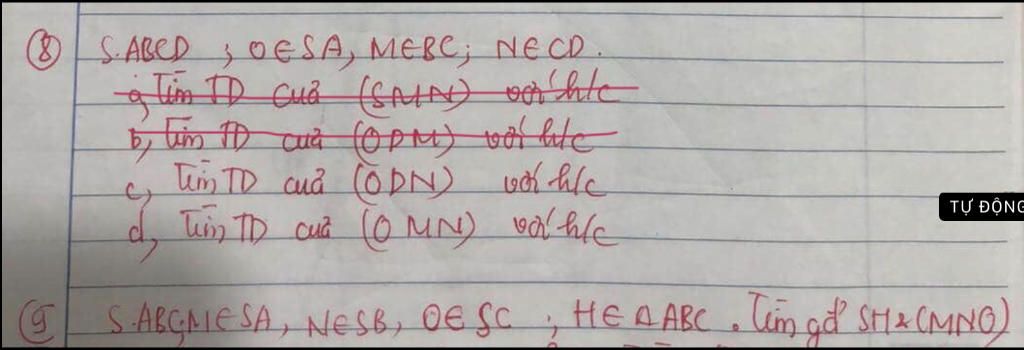 ⑧ S.ABCD ; O∈SA, M∈BC; N∈CD.
a, Tìm TD cuả (SMN) với h/c
b, Tìm TD cuả (ODM) với h/c
c, Tìm TD cuả (ODN) với h/c
d, Tìm TD cuả (OMN) với h/c
TỰ ĐỘNG
⑨ S.ABC, M∈SA, N∈SB, O∈SC ; H∈ΔABC. Tìm gđ SH & (MNO)